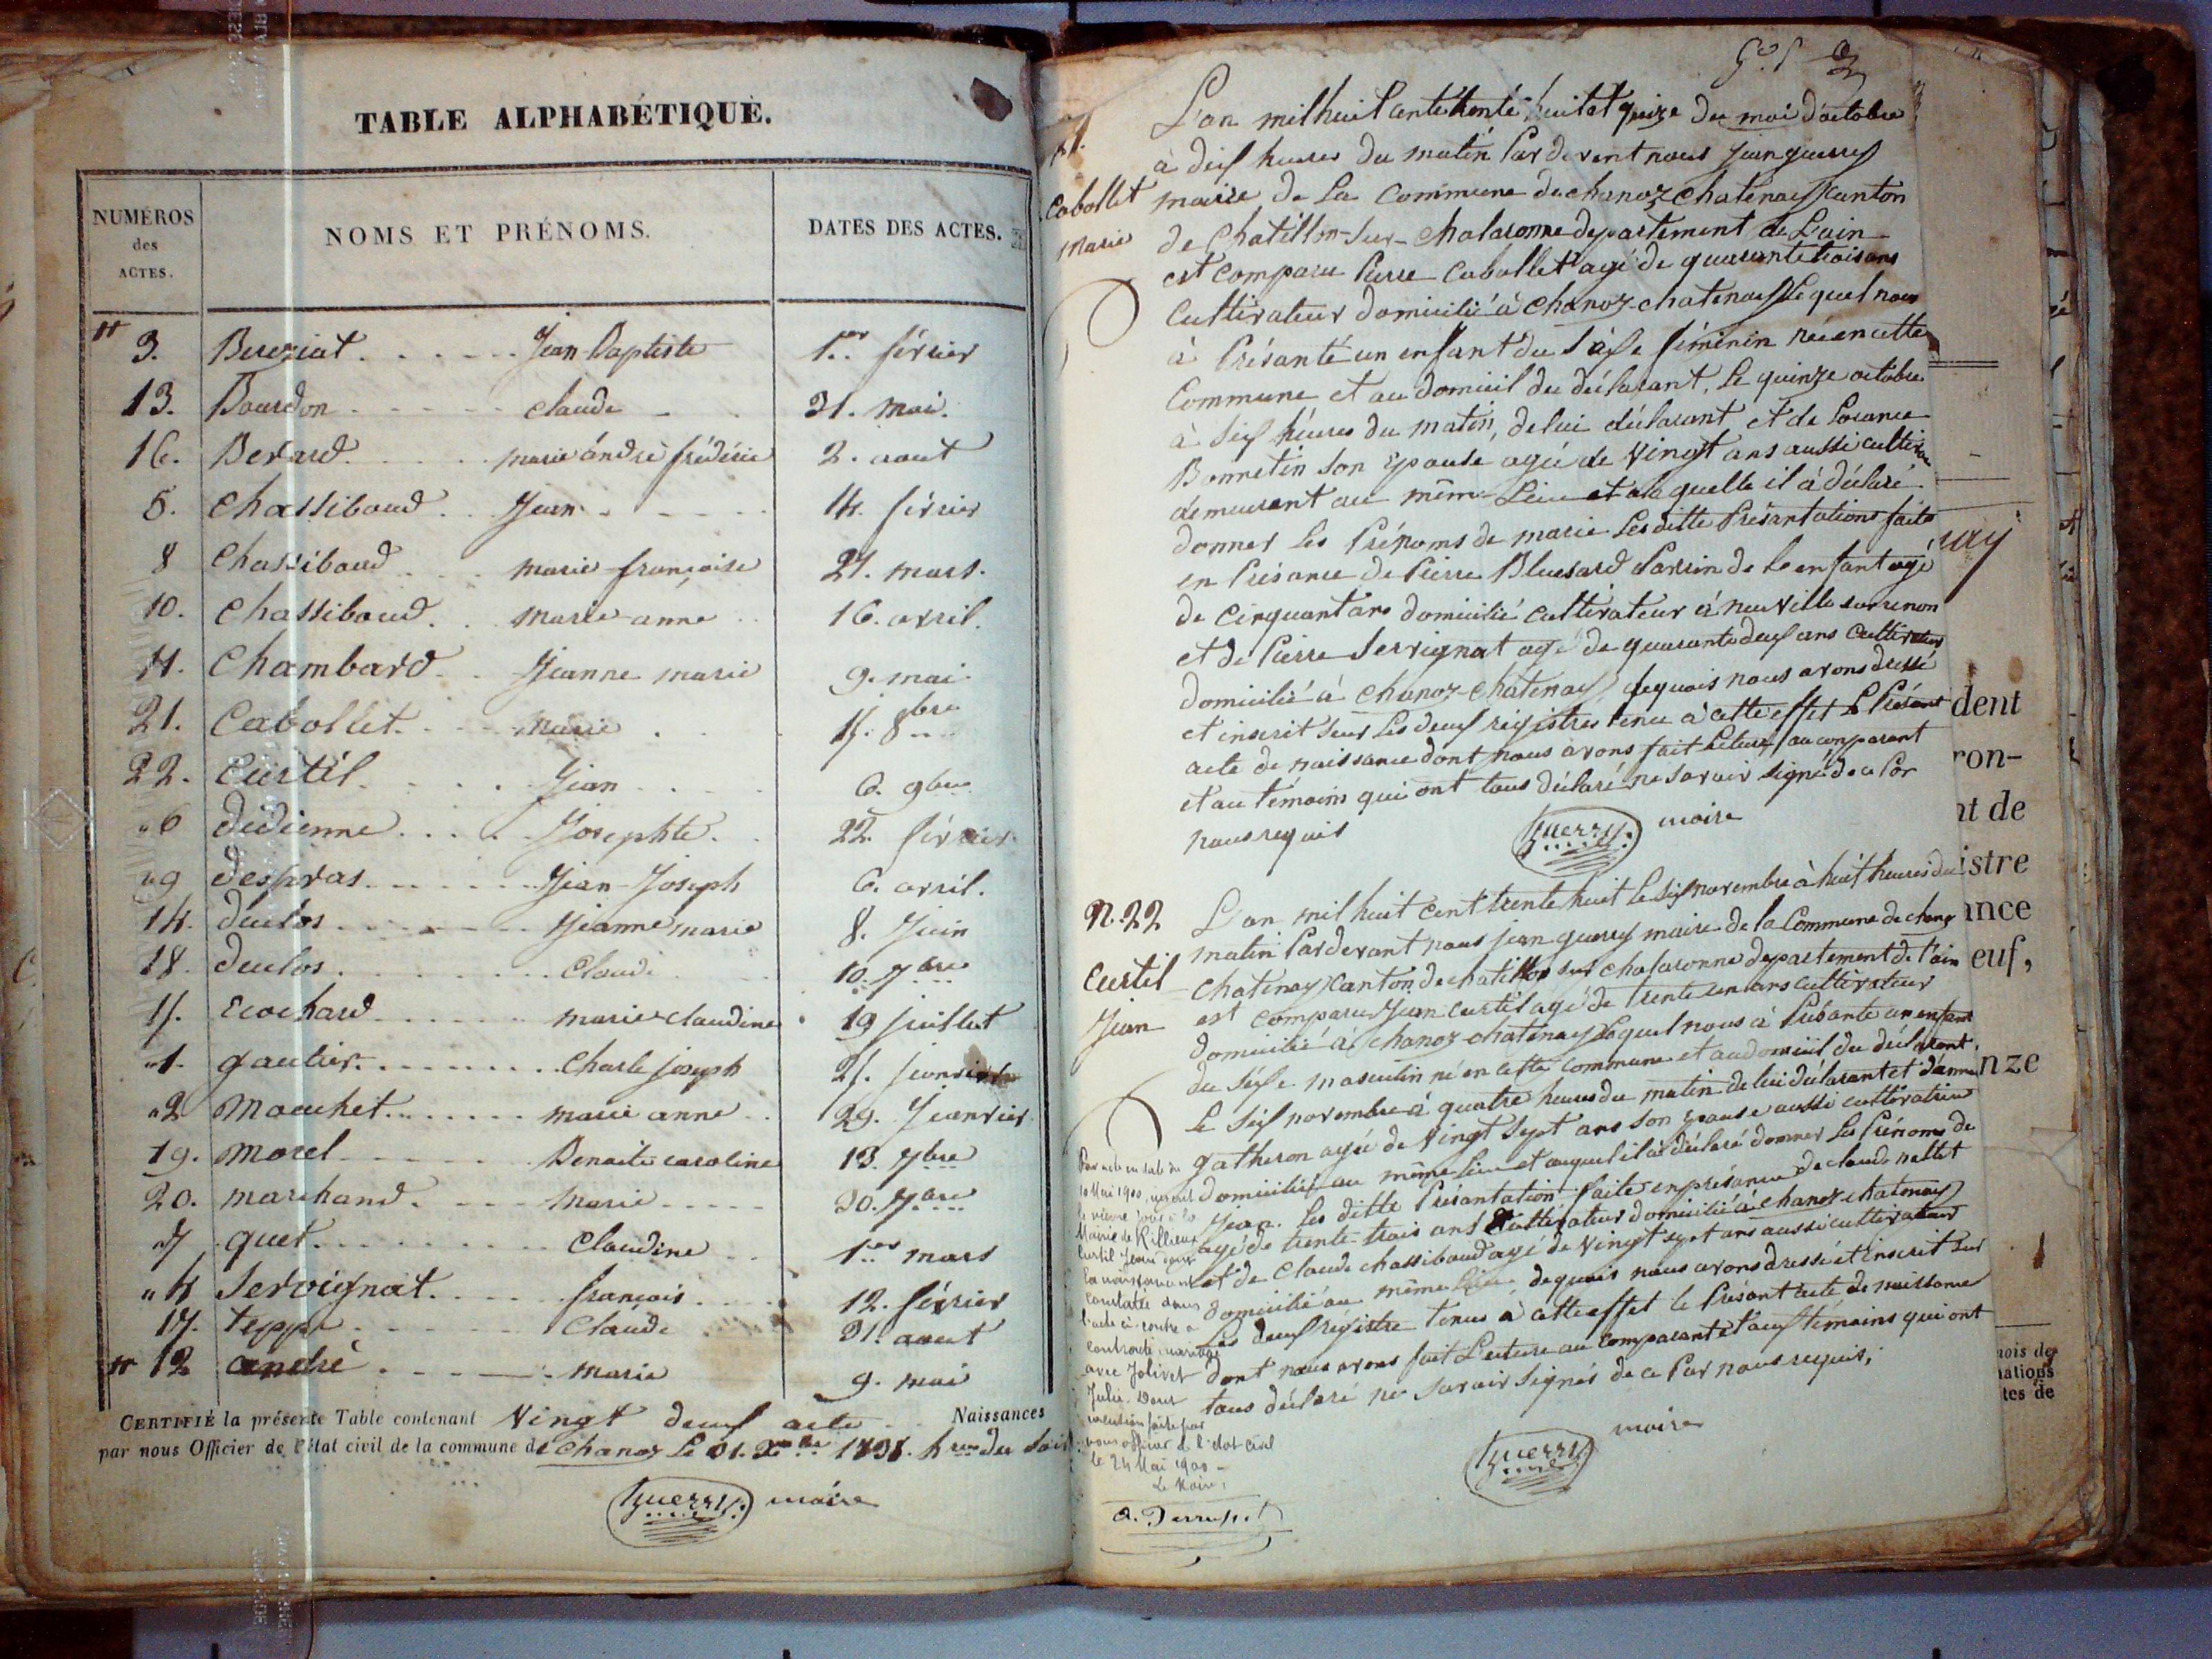 TABLE ALPHABÉTIQUE.
NUMÉROS des ACTES. NOMS ET PRÉNOMS. DATES DES ACTES.
3. Bereziat Jean Baptiste 1er février
13. Bourdon claude 31. mai.
16. Berard marie ándré frédéric 2. aout
5. Chassiboud Jean 14. février
8 Chassiboud marie françoise 27. mars.
10. Chassiboud marie anne 16. avril.
11. Chambard Jeanne marie 9. mai
21. Cabollet marie 15. 8bre
22. Curtil Jean 6. 9bre
"6 didienne Josephte 22. février
"9 despras Jean-Joseph 6. avril.
14. duclos Jeanne marie 8. Juin
18. duclos Claude 10. 7bre
15. Ecochard marie claudine 19 juillet
"1. gautier Charle joseph 25. janvier
"2 Mouchet marie anne 29. Jeanvier
19. Morel Benoite caroline 13. 7bre
20. marchand marie 30. 7bre
"7 quet Claudine 1er mars
"4 Servignat françois 12. février
17. teppe Claude 31. aout
12 andré marie 9. mai
CERTIFIÉ la présente Table contenant Vingt deux acte Naissances
par nous Officier de l'état civil de la commune de Chanoz Le 31. Xbre 1838. hres du soir
Guerry maire
21.
Cabollet
Marie
L'an mil huit cent trente huit et quize du moi d'octobre
à dix heures du matin Par devent nous Jean guerry
maire de La Commune de chanoz chatenay Canton
de Chatillon-sur-chalaronne departement de L'ain
est comparu Pierre Cabollet agé de quarante trois ans
Cultivateur domicilié à chanoz-chatenay Le quel nous
à Présanté un enfant du séxe féminin née en cette
Commune et au domicil du déclarant, Le quinze octobre
à six héures du matin, de lui déclarant et de Lorance
Bonnetin son épouse agée de Vingt ans aussi cultiv
demeurant au même Lieu et a la quelle il à déclaré
donner Les Prénoms de marie Les ditte Présantations faite
en Présance de Pierre Bluesard Parrin de Le enfant agé
de Cinquant ans domicilié cultivateur à neuville sur renon
et de Pierre Servignat agé de quarante deux ans Cultivateur
domicilié à Chanoz-Chatenay, dequois nous avons dressé
et inscrit sur Les deux régistres tenu à cette effet Le Présent
acte de naissance dont nous avons fait Lecture au comparant
et au temoins qui ont tous déclaré ne savoir signé de ce Par
nous requis
Guerry. maire
N. 22
Curtil
Jean
L'an mil huit cent trente huit Le six novembre à huit heures du
matin Pardevant nous jean guerry maire de la Commune de chanoz
Chatenay Canton de chatillon sur chalaronne departement de l'ain
est comparu Jean Curtil agé de trente un ans cultivateur
domicilié à chanoz chatenay Lequel nous à Présanté un enfant
du séxe masculin né en cette commune et au domicil du déclarant
Le six novembre à quatre heures du matin de lui déclarant et d'anne
gathéron agée de Vingt sept ans son épouse aussi cultivatrice
domiciliée au même Lieu et auquel il à déclaré donner Les Prénoms de
Jean. Les ditte Présantation faite en présance de claude nallet
agé de trente-trois ans Cultivateur domicilié à chanoz chatenay
et de Claude chassiboud agé de Vingt sept ans aussi cultivateur
domicilié au même Lieu, dequois nous avons dressé et inscrit sur
Les deux régistre tenus à cette effet Le Présant acte de naissance
dont nous avons fait Lecture au comparant et aux témoins qui ont
tous déclaré ne savoir signés de ce Par nous requis,
Guerry maire
Par acte en date du
10 Mai 1900,
Mairie de Rillieux
Curtil Jean dont
la naissance est
constatée dans
l'acte ci-contre a
contracté mariage
avec Jolivet
Julie. Dont
mention faite par
nous officier de l'état civil
le 24 Mai 1900
Le Maire,
dent
ron-
nt de
istre
ance
euf,
nze
mois de
nations
tes de